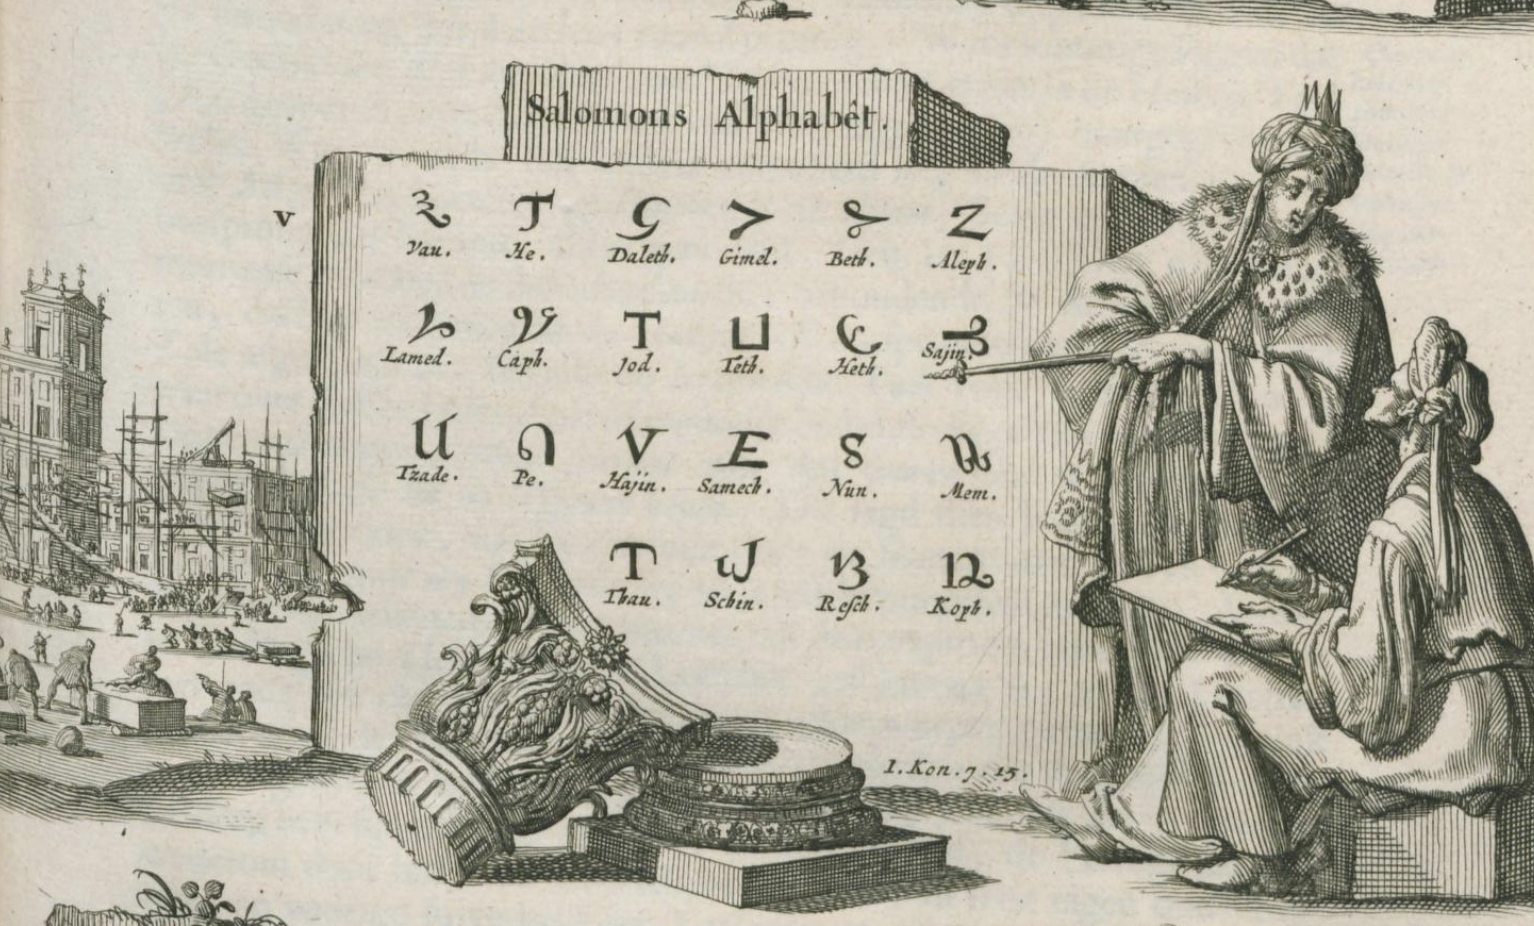 Salomons Alphabêt.
V
Vau. He. Daleth. Gimel. Beth. Aleph.
Lamed. Caph. Jod. Teth. Heth. Sajin.
Tzade. Pe. Hajin. Samech. Nun. Mem.
Thau. Schin. Resch. Koph.
I. Kon. 7. 15.